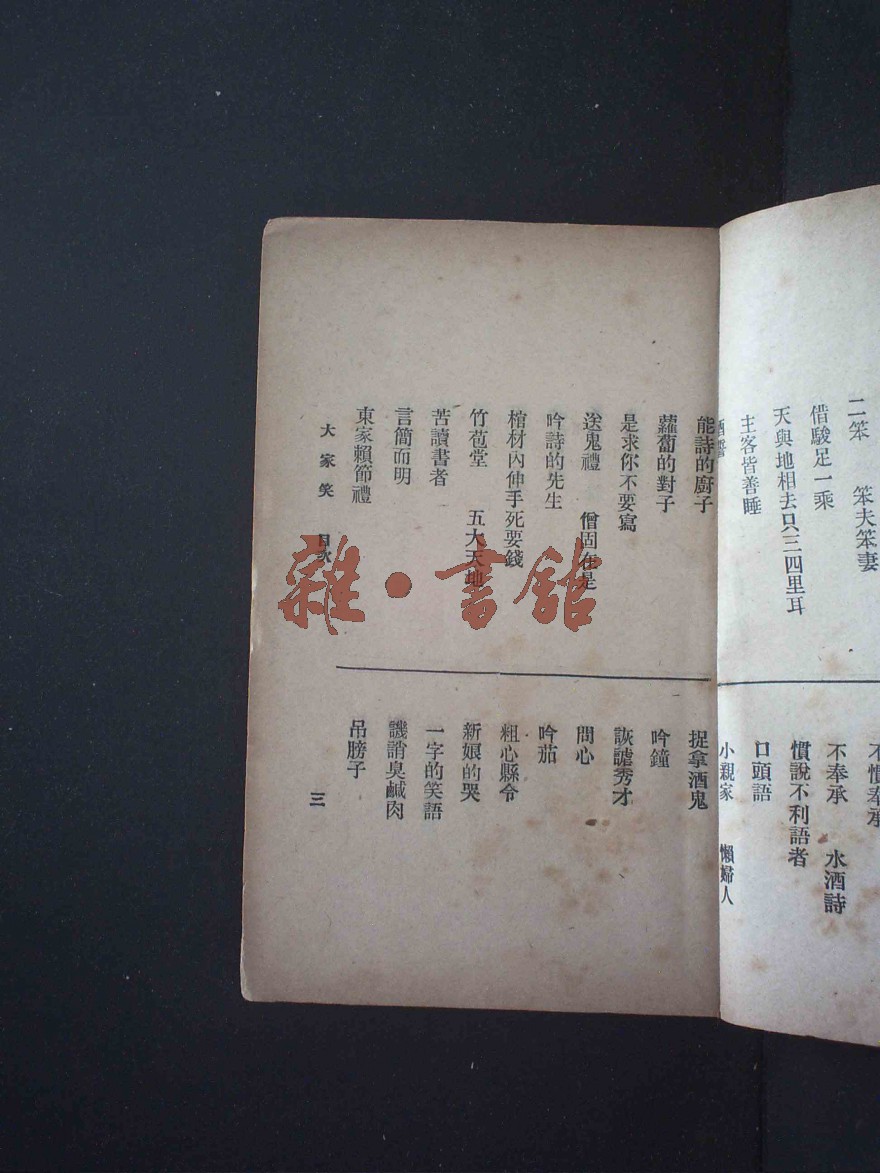 二笨 笨夫笨妻
借駿足一乘
天與地相去只三四里耳
主客皆善睡
不奉承 水酒詩
慣說不利語者
口頭語
小親家 懶婦人
能詩的廚子
蘿蔔的對子
是求你不要寫
送鬼禮 僧固在是
吟詩的先生
棺材內伸手死要錢
竹苞堂 五大天地
苦讀書者
言簡而明
東家賴節禮
捉拿酒鬼
吟鐘
詼謔秀才
問心
吟茄
粗心縣令
新娘的哭
一字的笑語
譏誚臭鹹肉
吊膀子
大家笑 目次
三
雜·書館